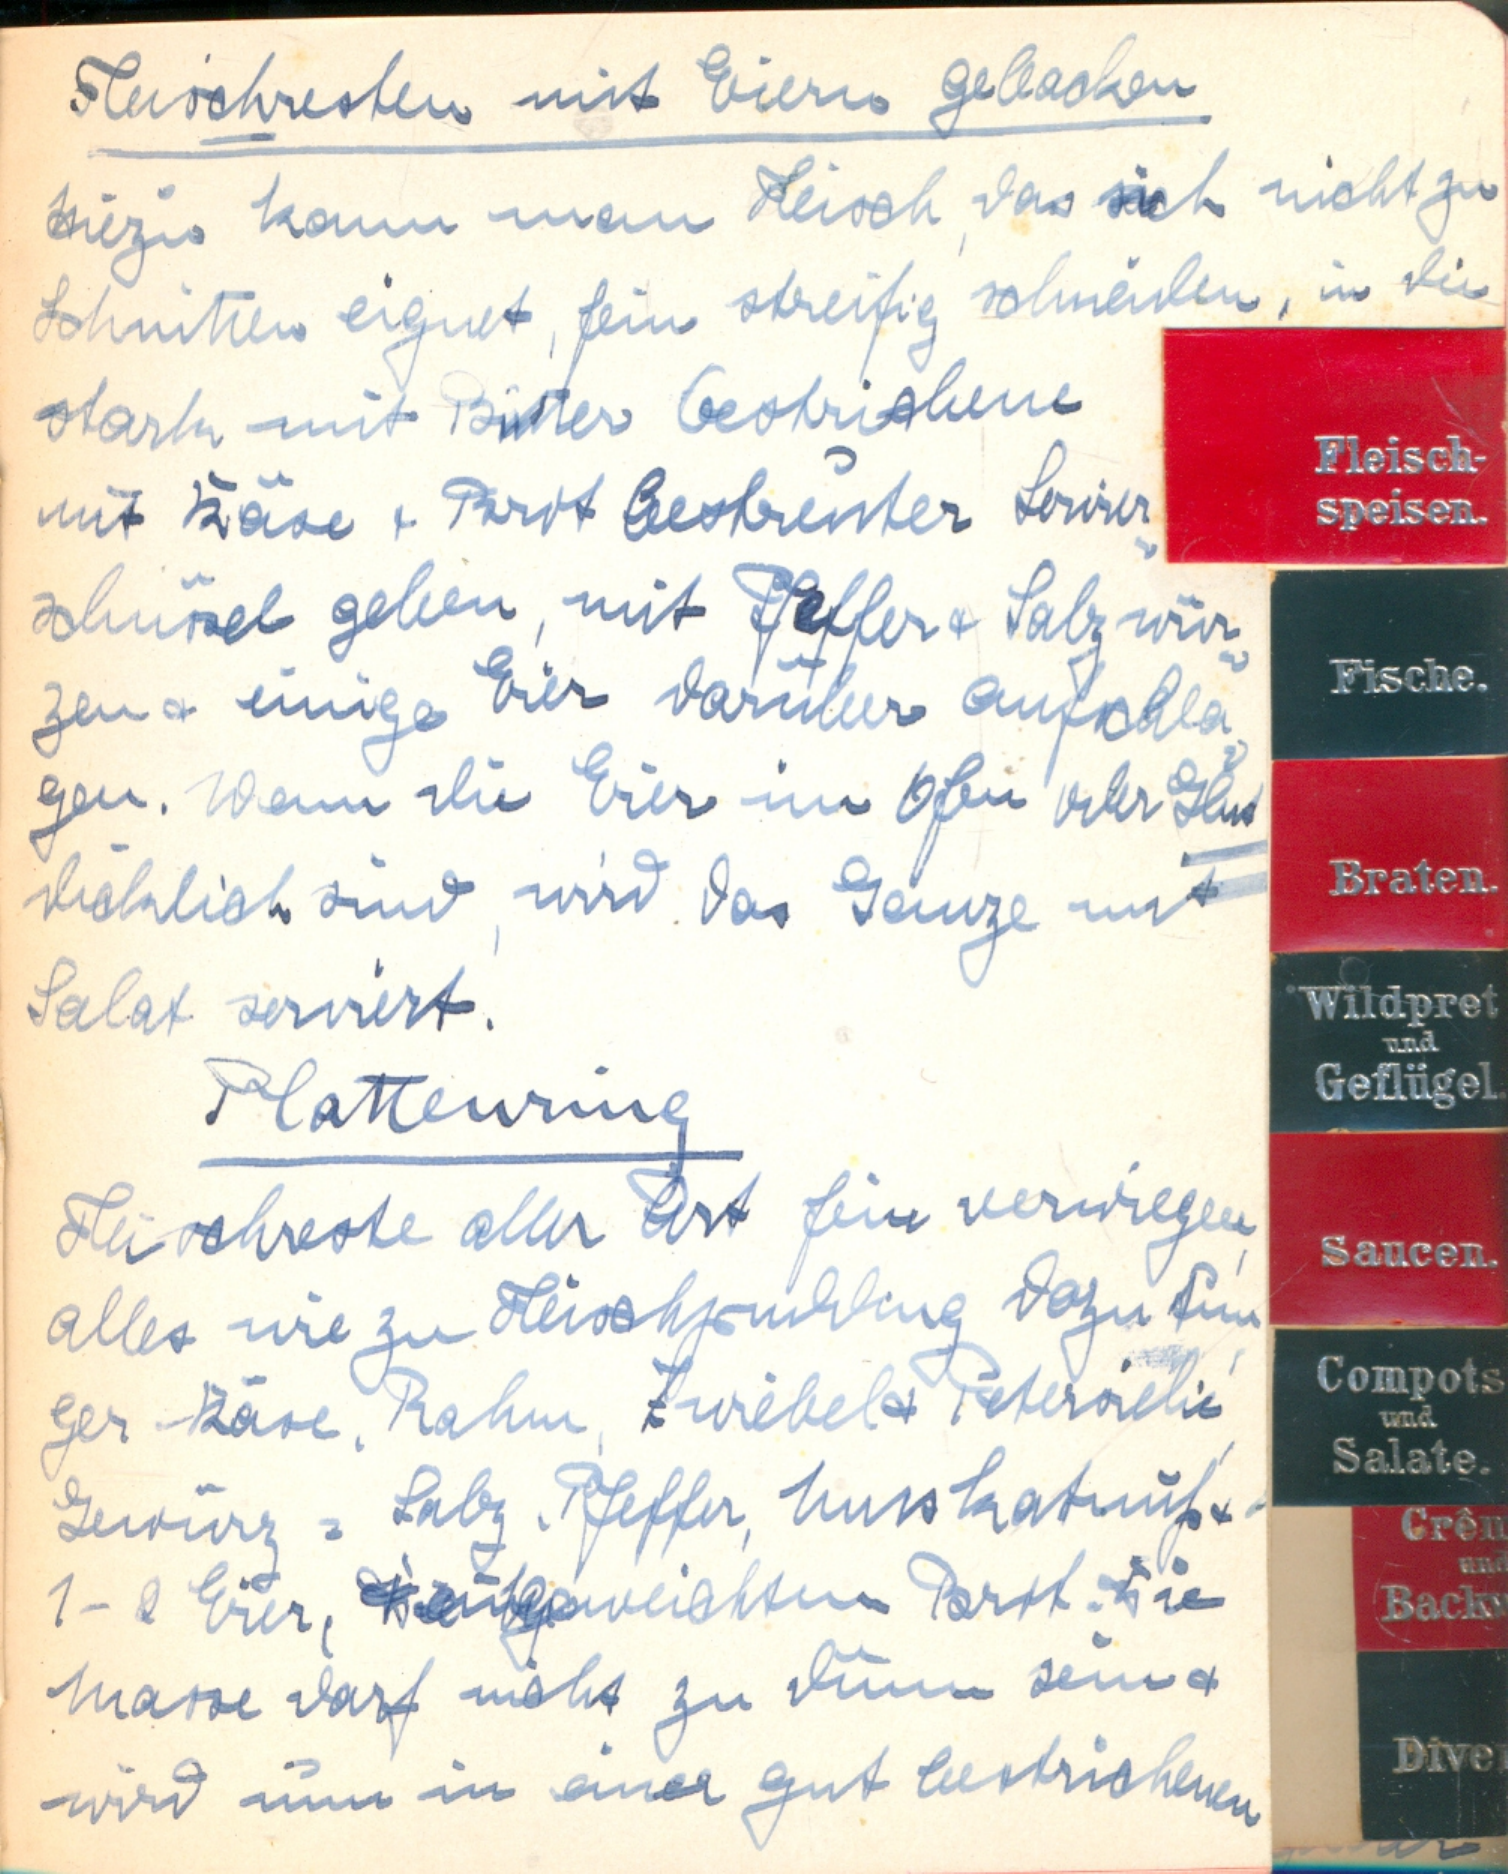 Fleischresten mit Eiern gebacken
Hiezu kann man Fleisch, das sich nicht zu
Schnitten eignet, fein streifig schneiden, in die
stark mit Butter bestrichene
mit Käse & Brot bestreuter Servier„
schüssel geben, mit Pfeffer & Salz wür„
zen & einige Eier darüber aufschla„
gen. Wenn die Eier im Ofen oder Glut
dicklich sind, wird das Ganze mit
Salat serviert.
Plattenring
Fleischreste aller Art fein verwiegen,
alles wie zu Fleischpudding dazu
ger Käse, Rahm, Zwiebel & Petersielie,
Gewürz = Salz, Pfeffer, Musskatnuß &
1-2 Eier, Brot. Die
Masse darf nicht zu dünn sein &
wird nun in einer gut bestrichenen
Fleisch-
speisen.
Fische.
Braten.
Wildpret
und
Geflügel.
Saucen.
Compots
und
Salate.
Crêm
und
Backw
Dive